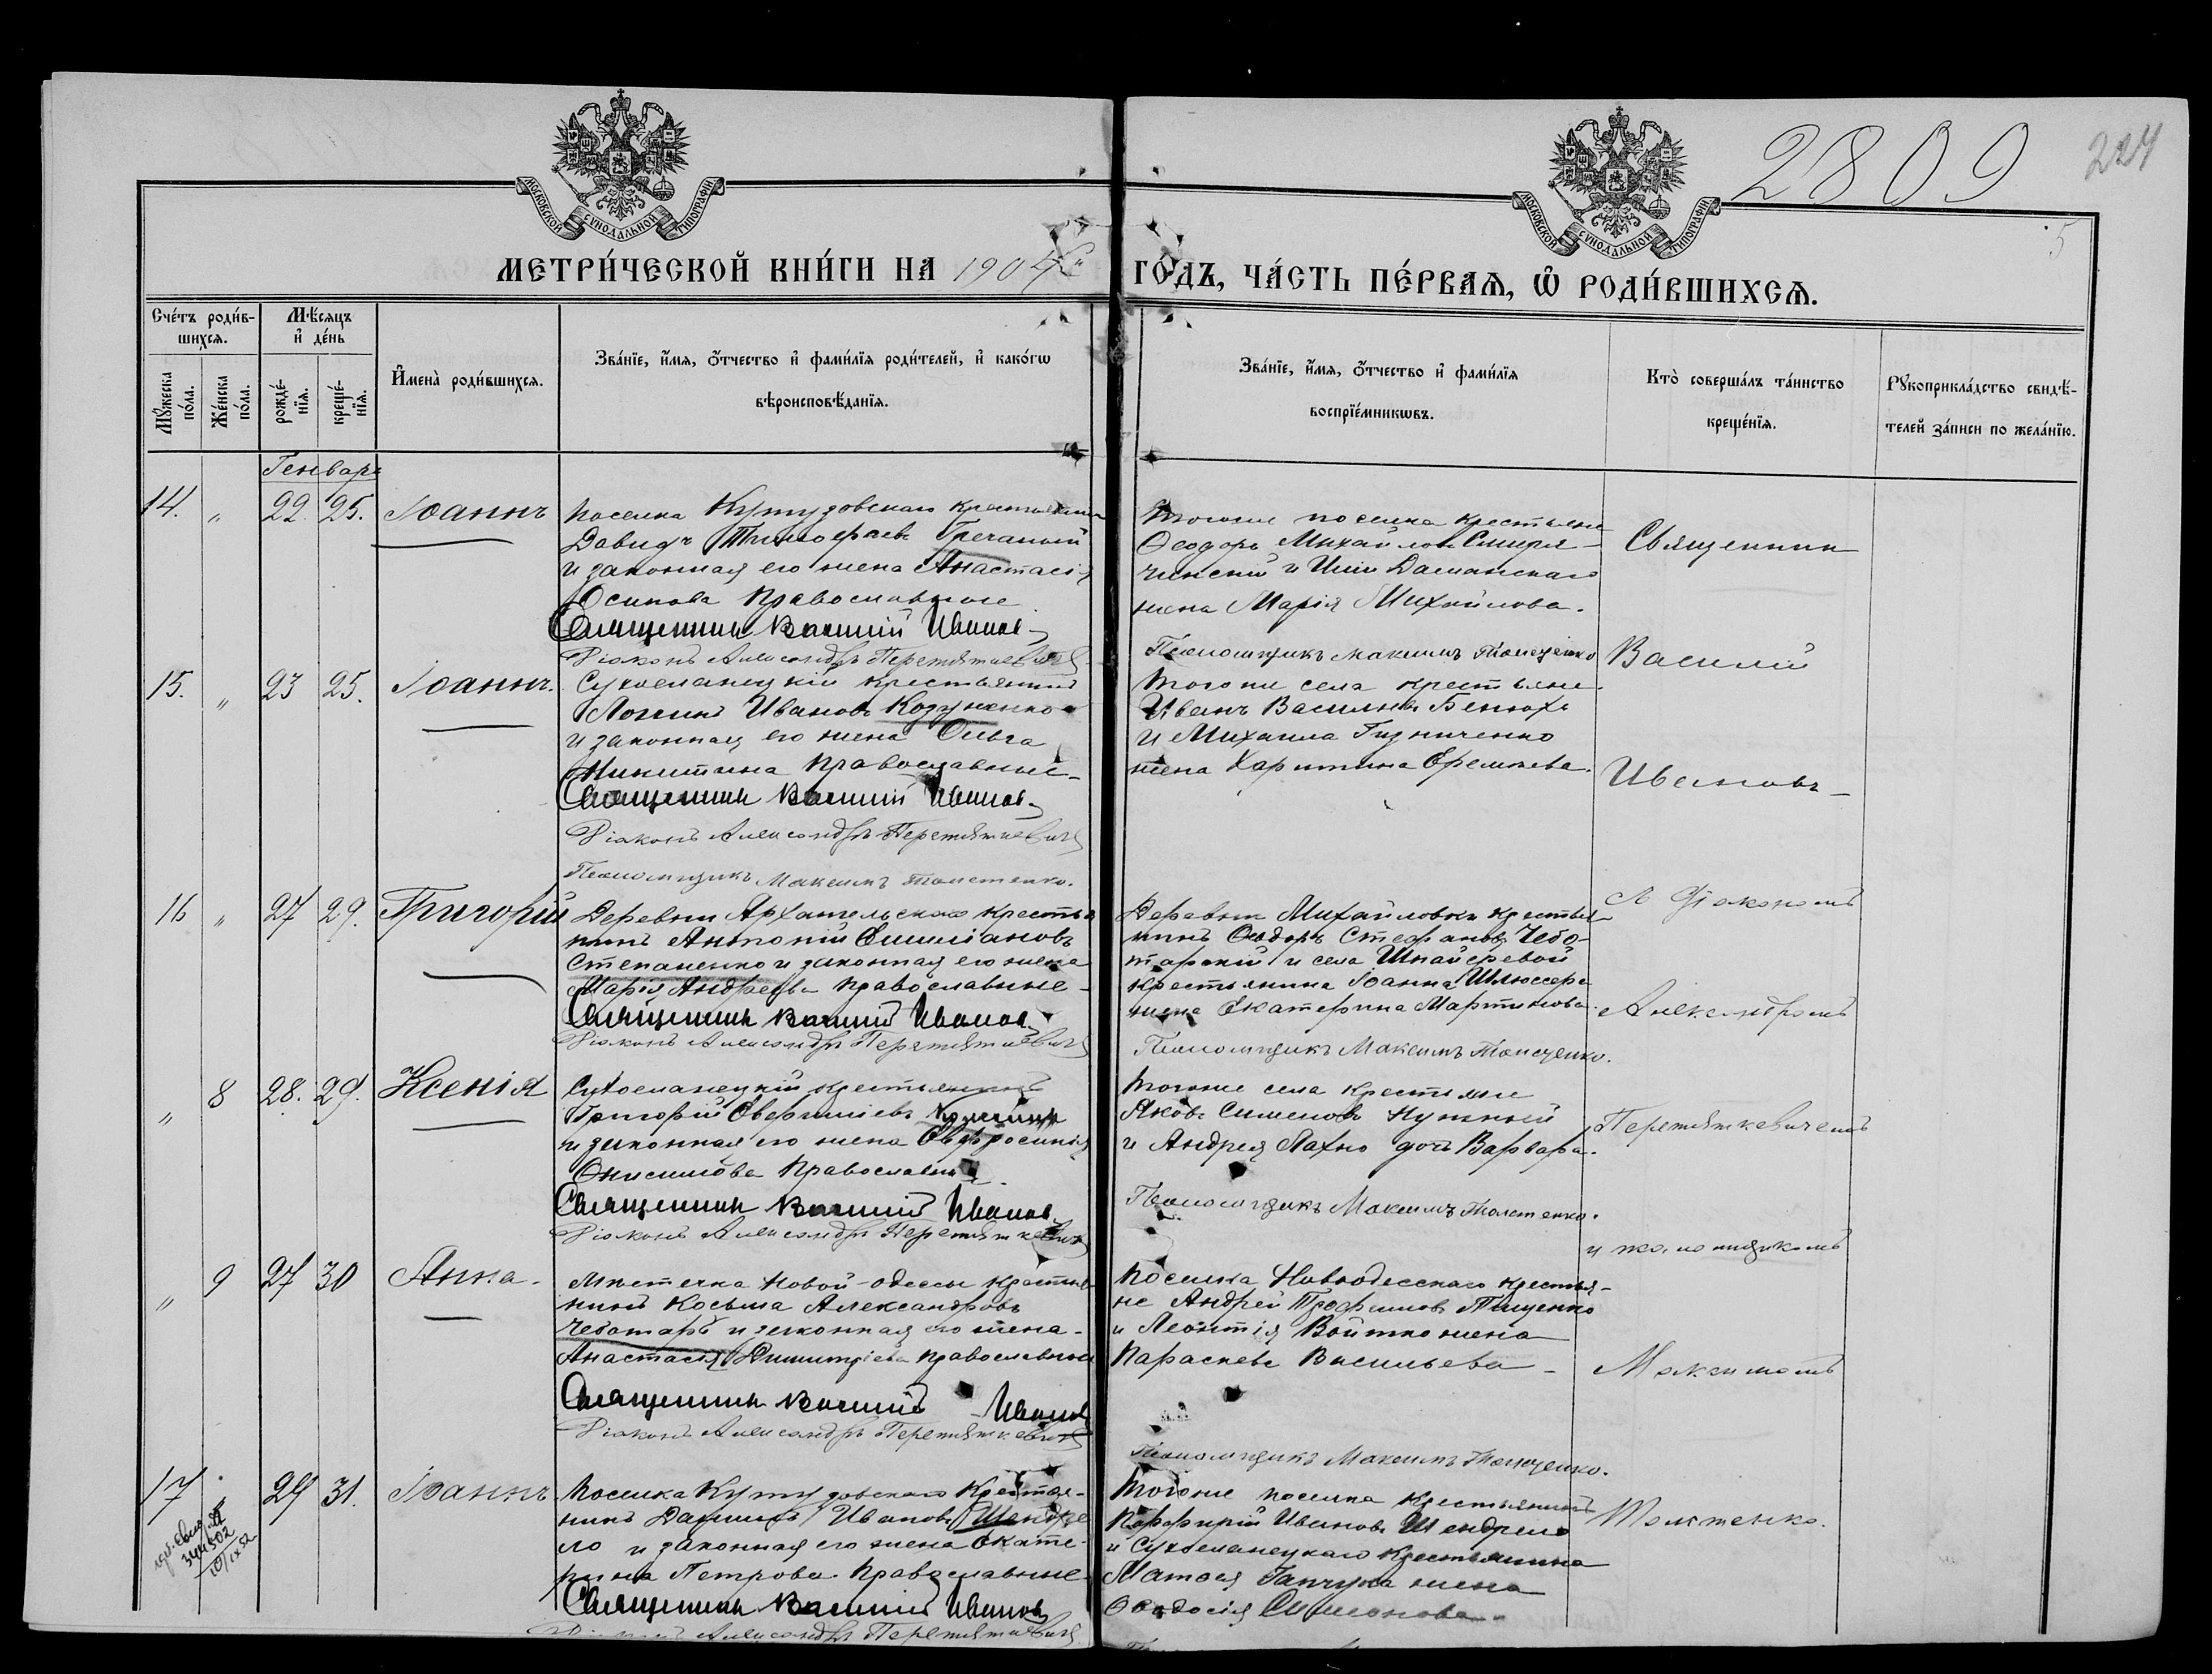 2809
224
5
МОСКОВСКОЙ СУНОДАЛЬНОЙ ТИПОГРАФІИ
МОСКОВСКОЙ СУНОДАЛЬНОЙ ТИПОГРАФІИ
МЕТРИ́ЧЕСКОЙ КНИ́ГИ НА 1904й ГО́ДЪ, ЧА́СТЬ ПЕ́РВАѦ, Ѡ҆ РОДИ́ВШИХСѦ.
Сче́тъ роди́в-
шихсѧ.
Мꙋ́жеска по́ла.
Же́нска по́ла.
Мѣ́сѧцъ и҆ де́нь
рожде́-
нїѧ.
креще́-
нїѧ.
И҆мена̀ роди́вшихсѧ.
Зва́нїе, и҆́мѧ, ѻ҆́тчество и҆ фами́лїѧ роди́телей, и҆ како́гѡ
вѣроисповѣ́данїѧ.
Зва́нїе, и҆́мѧ, ѻ҆́тчество и҆ фами́лїѧ
воспрїе́мникѡвъ.
Кто̀ соверша́лъ та́инство
креще́нїѧ.
Рꙋкоприкла́дство свидѣ́-
телей за́писи по жела́нїю.
Генварь
14. " 22. 25. Іоаннъ
Поселка Кутузовскаго крестьянинъ
Давидъ Тимофеевъ Гречаный
и законная его жена Анастасія
Осипова Православные
Священникъ Василій Ивановъ
Діаконъ Александръ Перетяткевичъ
Тогоже поселка крестьяне
Ѳеодоръ Михайловъ
и Даманскаго
жена Марія Михайлова.
Псаломщикъ Максимъ Толстенко
15. " 23 25. Іоаннъ.
Сухоеланецкій крестьянинъ
Логинъ Ивановъ Козуненко
и законная его жена Ольга
Никитина Православные
Священникъ Василій Ивановъ
Діаконъ Александръ Перетяткевичъ
Псаломщикъ Максимъ Толстенко.
Тогоже села крестьяне
Иванъ Васильевъ Бенюхъ
и Михаила Гизниченко
жена Харитина Ефремьева.
16 " 27 29. Григорій
Деревни Архангельскаго крестья
нинъ Антоній Емиліановъ
Степаненко и законная его жена
Марія Андреева Православные
Священникъ Василій Ивановъ
Діаконъ Александръ Перетяткевичъ
Деревни Михайловки крестья-
нинъ Ѳеодоръ Стефановъ Чебо-
тарскій и села Шпайеревой
крестьянина Іоанна Шлюссера
жена Екатерина Мартинова.
Псаломщикъ Максимъ Толстенко.
" 8 28. 29. Ксенія
Сухоеланецкій крестьянинъ
Григорій Евфиміевъ
и законная его жена Евфросинія
Онисимова Православные
Священникъ Василій Ивановъ
Діаконъ Александръ Перетяткевичъ
Тогоже села крестьяне
Яковъ Симеоновъ Нужный
и Андрея Лахно дочь Варвара.
Псаломщикъ Максимъ Толстенко.
" 9 27 30 Анна.
Мѣстечка Новой-Одессы крестья
нинъ Косьма Александровъ
Чеботарь и законная его жена
Анастасія Димитріева Православные
Священникъ Василій Ивановъ
Діаконъ Александръ Перетяткевичъ
Поселка Новоодесскаго крестья-
не Андрей Трофимовъ Пищенко
и Леонтія Войтко жена
Параскева Васильева
Псаломщикъ Максимъ Толстенко.
17 " 29 31. Іоаннъ
344502
10/IX 52
Поселка Кутузовскаго крестья-
нинъ Даніилъ Ивановъ Шендре
ло и законная его жена Екате-
рина Петрова. Православные
Священникъ Василій Ивановъ
Діаконъ Александръ Перетяткевичъ
Тогоже поселка крестьянинъ
Порфирій Ивановъ Шендрело
и Сухоеланецкаго крестьянина
Матѳея Гапчука жена
Ѳеодосія Симеонова.
Священник
Василій
Ивановъ
съ Діакономъ
Александромъ
Перетяткевичемъ
и псаломщикомъ
Максимомъ
Толстенко.